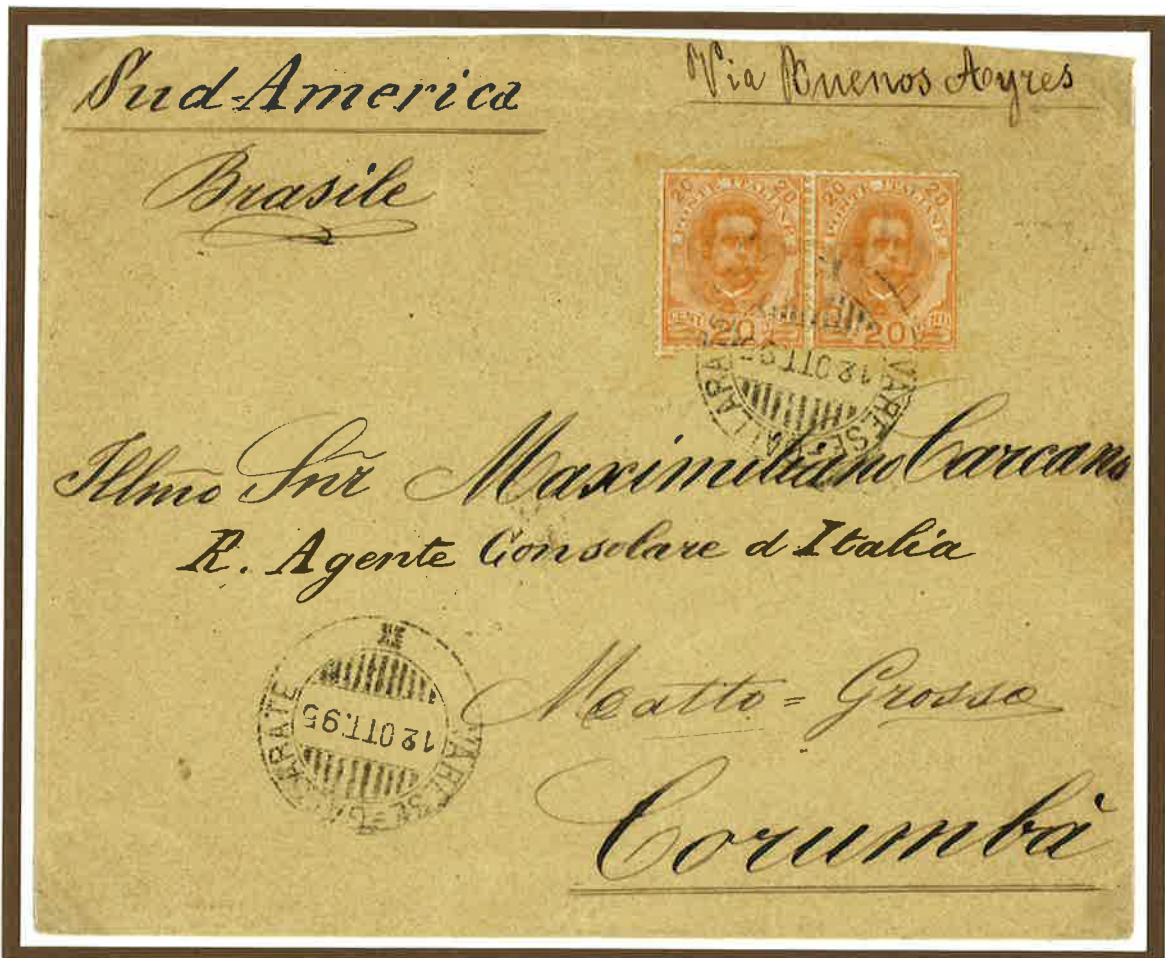 Sud-America
Via Buenos Ayres
Brasile
20 20
POSTE ITALIANE
CENT 20
20 20
POSTE ITALIANE
20
VARESE-GALLARATE
12 OTT.95
Illmo Snr Maximiliano Carcano
R. Agente Consolare d Italia
VARESE-GALLARATE
12 OTT.95
Matto = Grosso
Corumbà